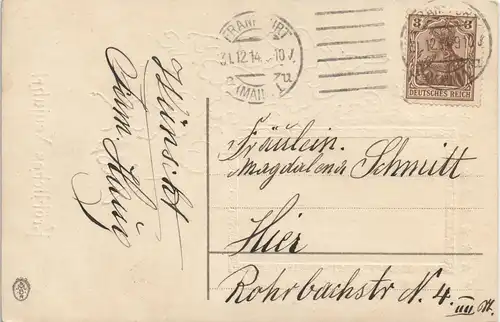 FRANKFURT
31.12.14. 9-10 V.
(MAIN)
3
DEUTSCHES REICH
Wünscht
Fam. Haug
Fräulein.
Magdalena Schmitt
Hier
Rohrbachstr N. 4. III St.